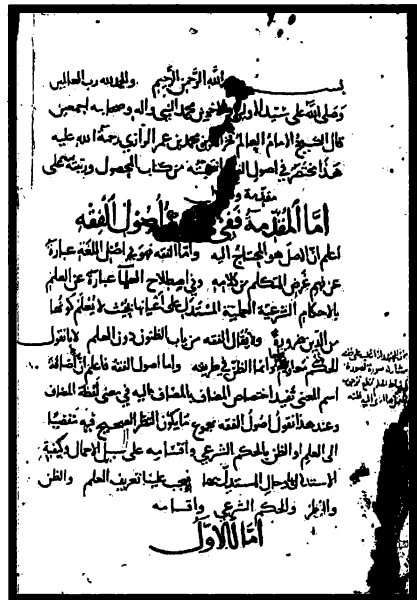 بسم الله الرحمن الرحيم والحمد لله رب العالمين
وصلى الله على سيد الاولين والاخرين محمد النبي واله وصحابه اجمعين
قال الشيخ الامام العالم فخر الدين محمد بن عمر الرازي رحمة الله عليه
هذا مختصر في اصول الفقه انتخبته من كتاب المحصول ورتبته على
مقدمة و
أما المقدمة ففي أصول الفقه
اعلم ان الاصل هو المحتاج اليه واما الفقه فهو في اصل اللغة عبارة
عن فهم غرض المتكلم من كلامه وفي اصطلاح العلماء عبارة عن العلم
بالاحكام الشرعية العملية المستدل على أعيانها بحيث لا يعلم كونها
من الدين ضرورة ولا يقال الفقه من باب الظنون دون العلم لانا نقول
الحكم معلوم وانما الظن في طريقه واما اصول الفقه فاعلم ان اضافة
اسم المعنى تفيد اختصاص المضاف بالمضاف اليه في حق لفظة المضاف
وعند هذا نقول أصول الفقه مجموع ما يكون النظر الصحيح فيه مفضيا
الى العلم او الظن بالحكم الشرعي واقسامه على سبيل الاجمال وكيفية
الاستدلال وحال المستدل بها فيجب علينا تعريف العلم والظن
والنظر والحكم الشرعي واقسامه
أما الاول